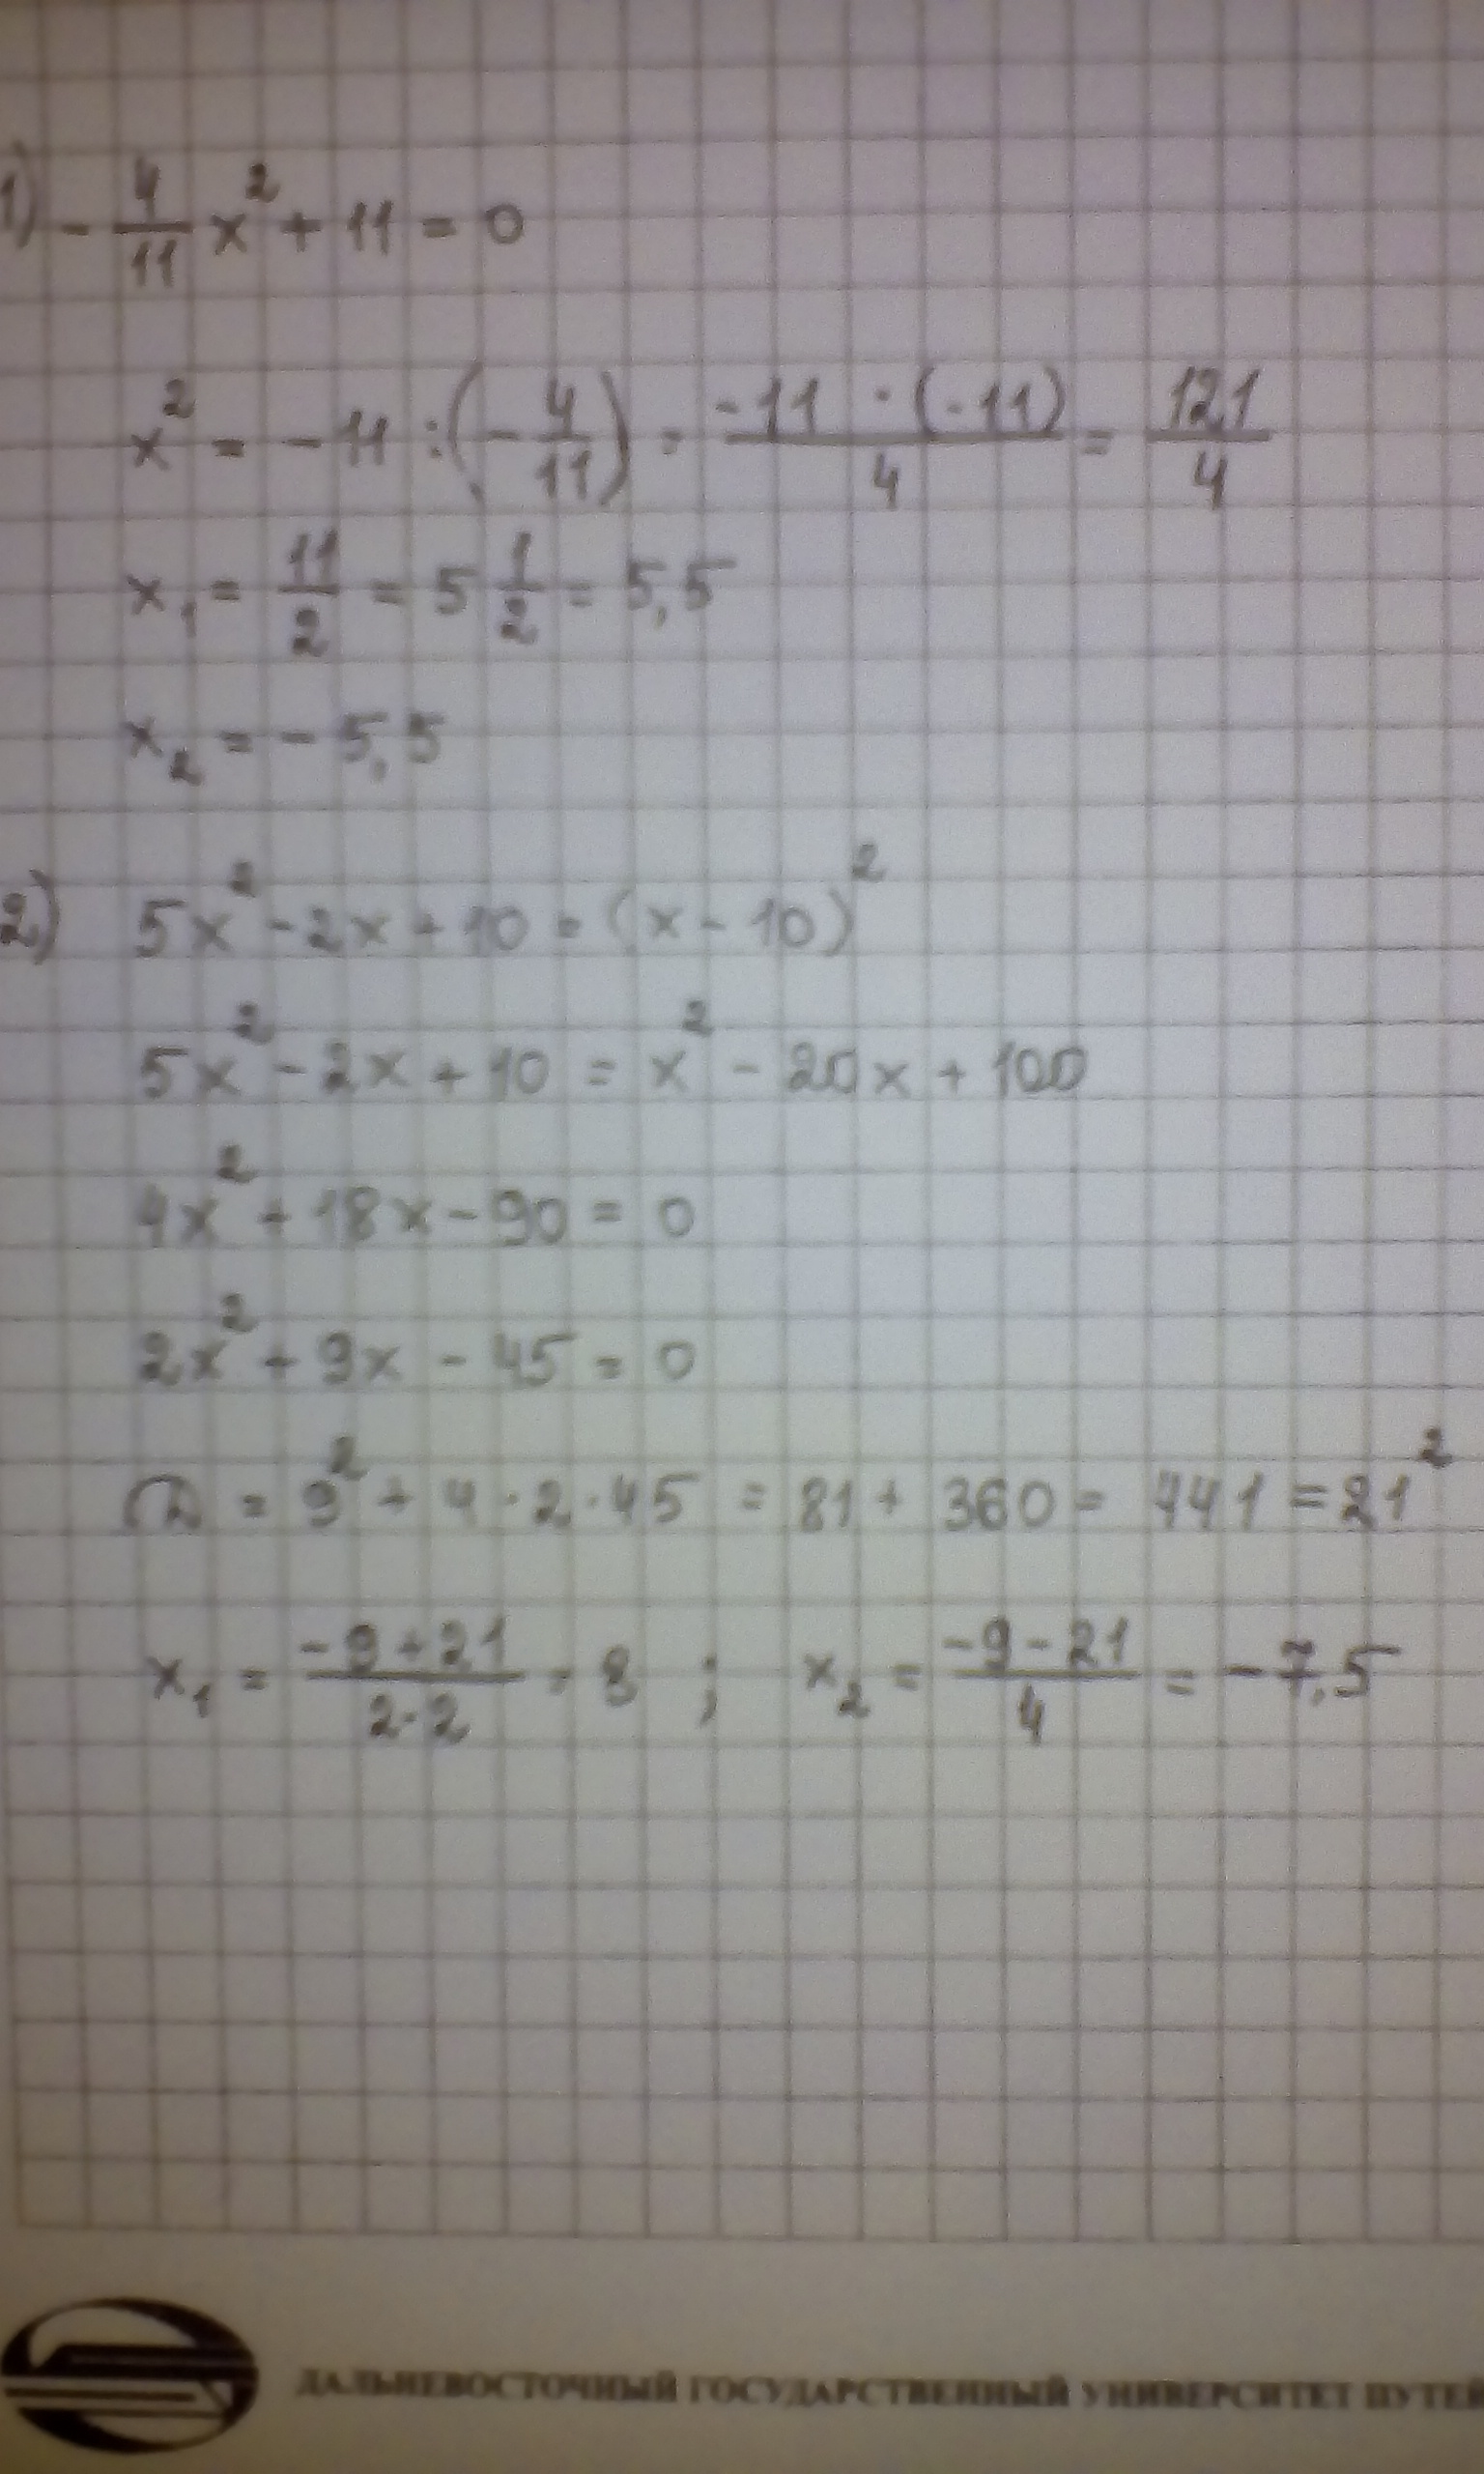 1) - 4/11 x² + 11 = 0
x² = - 11 : (- 4/11) = -11 · (-11)/4 = 121/4
x₁ = 11/2 = 5 1/2 = 5,5
x₂ = - 5,5
2) 5x² - 2x + 10 = (x - 10)²
5x² - 2x + 10 = x² - 20x + 100
4x² + 18x - 90 = 0
2x² + 9x - 45 = 0
D = 9² + 4 · 2 · 45 = 81 + 360 = 441 = 21²
x₁ = -9 + 21/2·2 = 3 ; x₂ = -9 - 21/4 = - 7,5
ДАЛЬНЕВОСТОЧНЫЙ ГОСУДАРСТВЕННЫЙ УНИВЕРСИТЕТ ПУТЕЙ